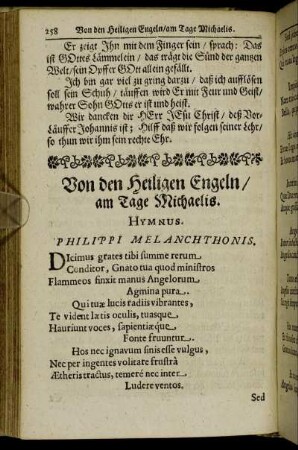 258 Von den Heiligen Engeln/am Tage Michaelis.
Er zeigt Ihn mit dem Finger sein / sprach: Das
ist GOttes Lämmelein / das trägt die Sünd der gantzen
Welt/sein Opffer GOtt allein gefällt.
Ich bin gar viel zu gring darzu/ daß ich aufflösen
soll sein Schuh/ täuffen wird Er mit Feur und Geist/
wahrer Sohn GOttes er ist und heist.
Wir dancken dir HErr JEsu Christ/ deß Vor-
läuffer Johannis ist; Hilff daß wir folgen seiner Lehr/
so thun wir ihm sein rechte Ehr.
Von den Heiligen Engeln/
am Tage Michaelis.
HYMNUS.
PHILIPPI MELANCHTHONIS.
DIcimus grates tibi summe rerum
Conditor, Gnato tua quod ministros
Flammeos finxit manus Angelorum
Agmina pura.
Qui tuæ lucis radiis vibrantes,
Te vident lætis oculis, tuasque
Hauriunt voces, sapientiæque
Fonte fruuntur.
Hos nec ignavum sinis esse vulgus,
Nec per ingentes volitare frustrà
Ætheris tractus, temerè nec inter
Ludere ventos.
Sed